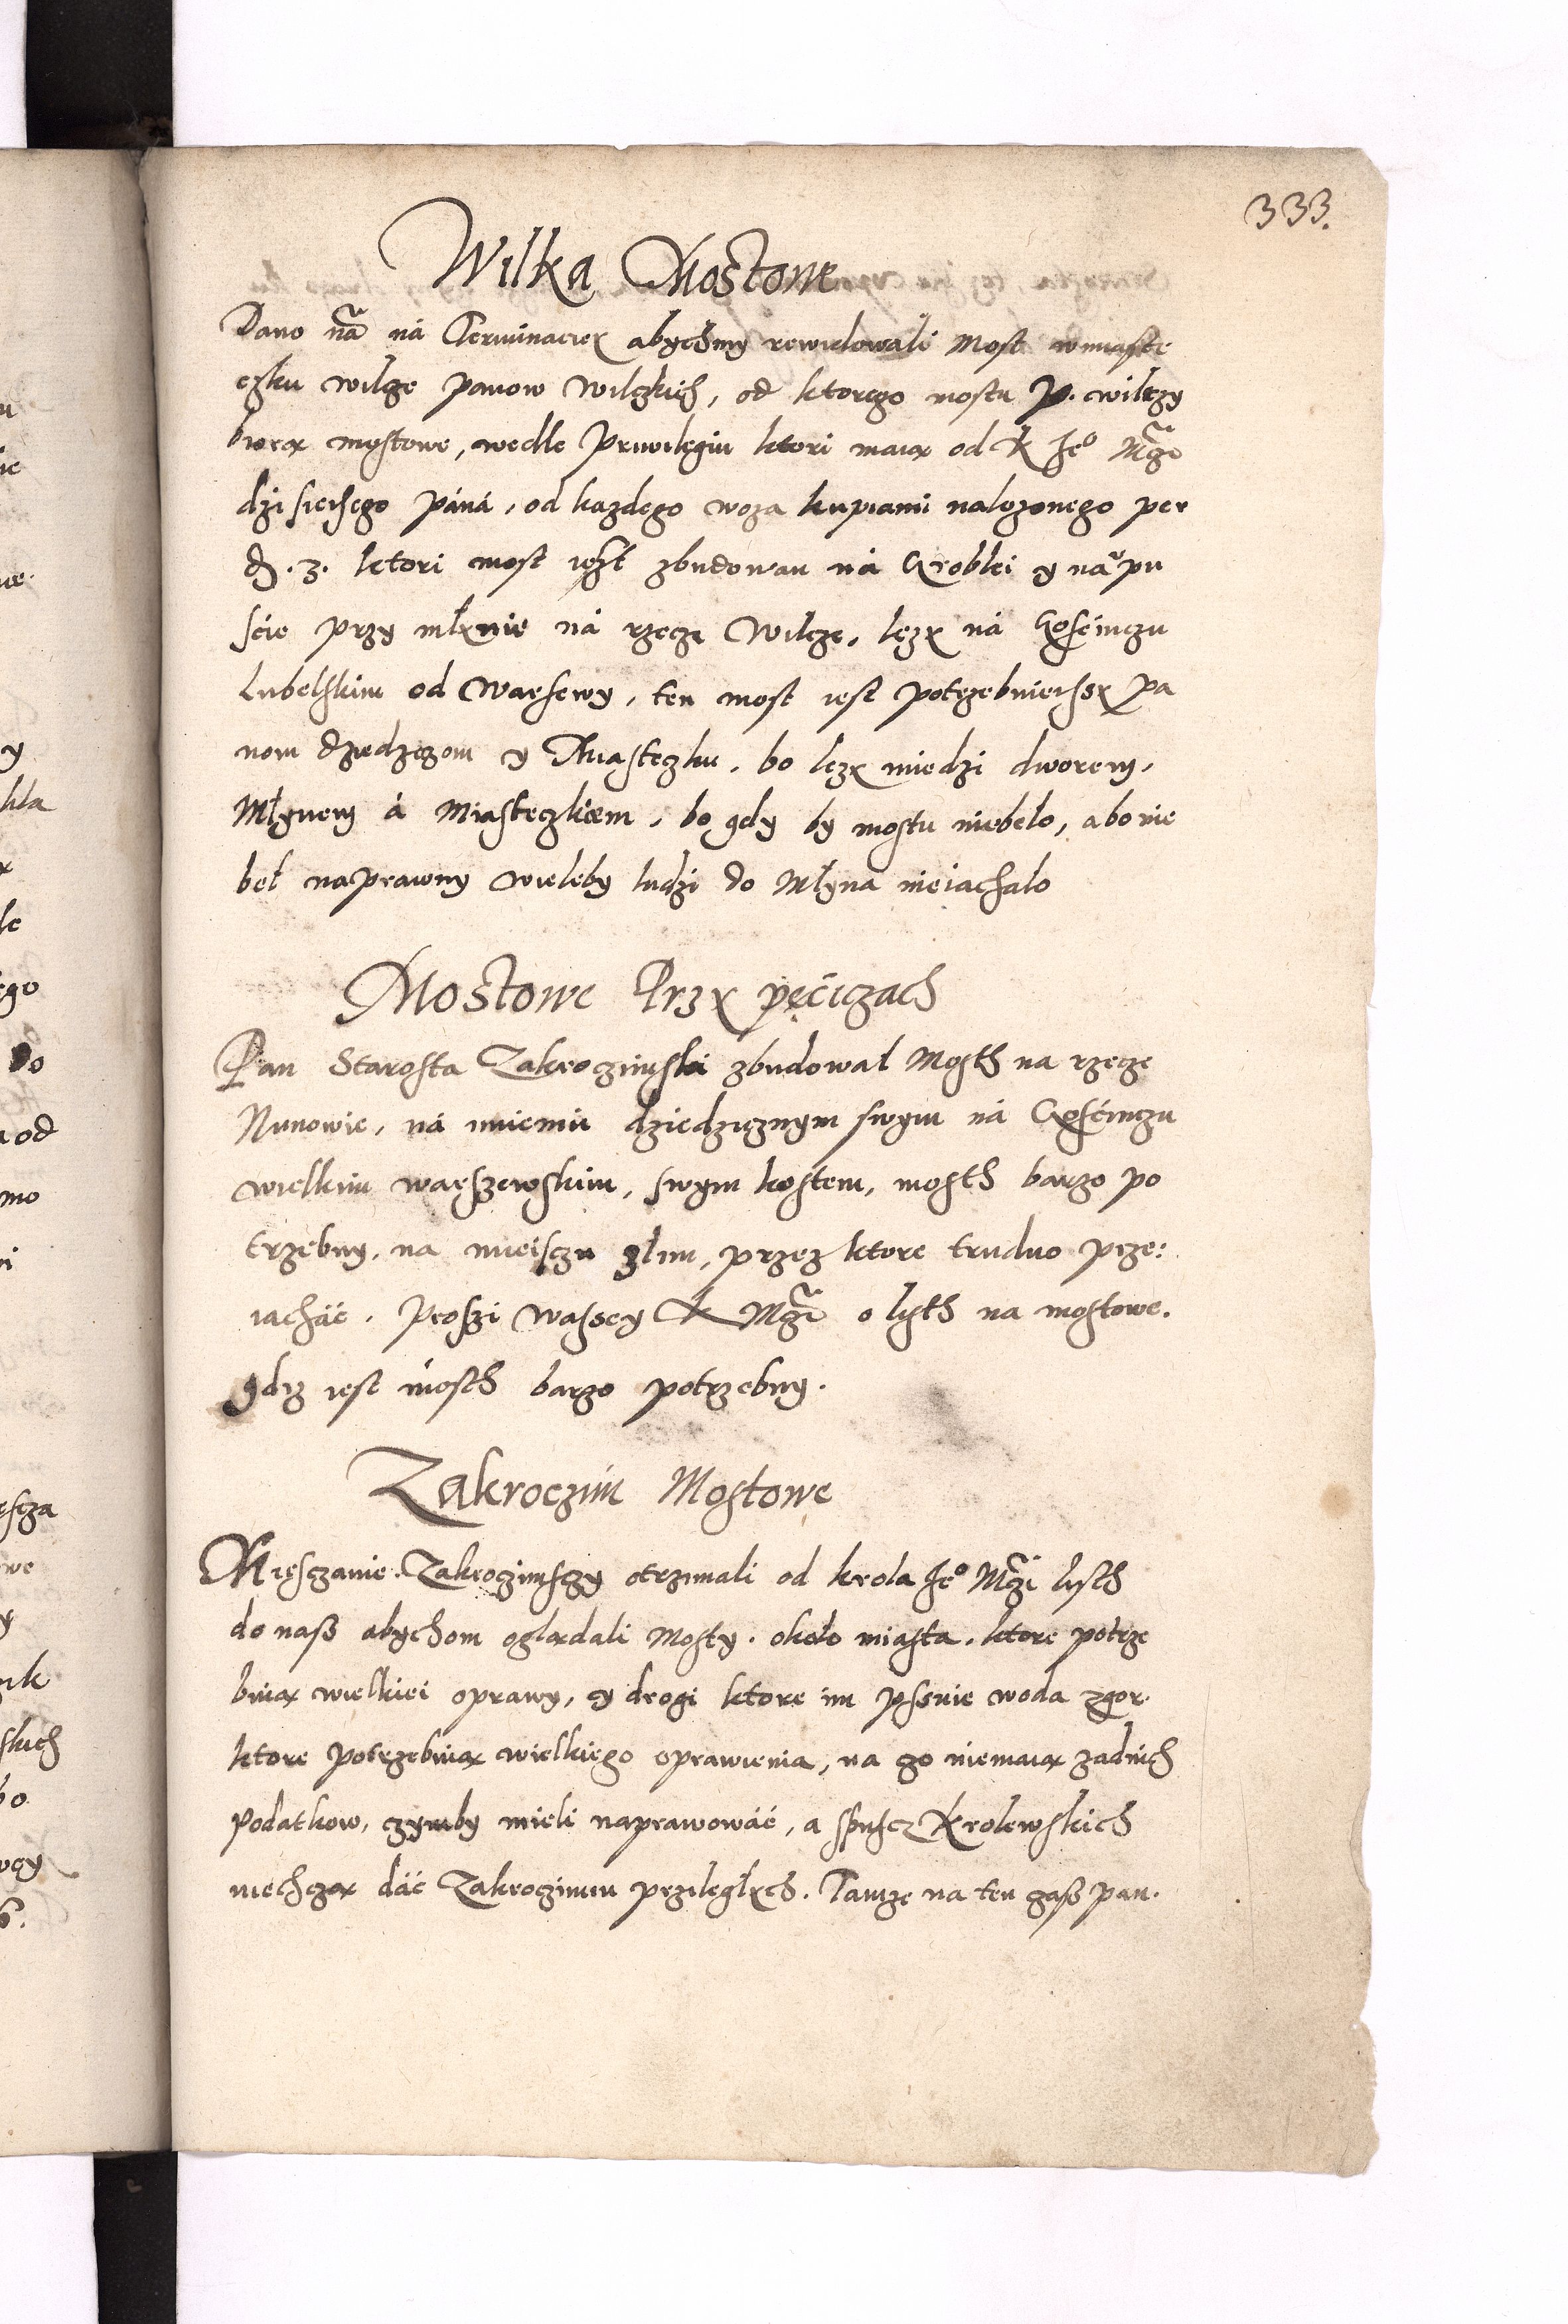 333.
Wilka Mostowe
Dano nã ná Terminaciei abychmy rewidowali Most wmiaste
czku wilze panow Wilczkich, od ktorego mostu p. wilczy
biorą mostowe, wedle Priwilegiu ktori maią od K Je⁰ Mczi
dzisieiszego páná, od kazdego woza kupiami nalozonego per
ꝺ. 3. ktori most iest zbudowan ná Grobli y nã pu
scie przy młynie ná rzecze Wilcze, lezy ná Gosćinczu
Lubelskim od Warsewy, ten most iest potrzebnieissy pa
nom dziedzczom y Miasteczku, bo lezy miedzi dworem,
Młynem á Miasteczkiem, bo gdy by mostu niebelo, abo nie
beł naprawny wieleby ludzi do Młyna nieiachalo
Mostowe Przy pęcziczach
Pan Starosta Zakroczimski zbudowal Mosth na rzecze
Nunowie, ná imieniu dziedzicznym swym ná Gosćinczu
wielkim warszewskim, swym kostem, mosth barzo po
trzebny, na mieisczu złim, przez ktore trudno prze:
iacháć. Proszi Wassey K Mczi o lysth na mostowe.
gdiz iest mosth barzo potrzebny.
Zakroczim Mostowe
Miesczanie Zakroczimsczy otrzimali od krola Je⁰ Mczi lysth
do nasz abychom oglądali Mosty. około miasta, ktore potrze
bnią wielkiei oprawy, y drogi ktore im pssuie woda zgor.
ktore potrzebnią wielkiego oprawienia, na zo niemaią zadnich
podatkow, czymby mieli naprawować, a spuscz Krolewskich
niechczą dáć Zakroczimiu przileglych. Tamze na ten czasz pan.